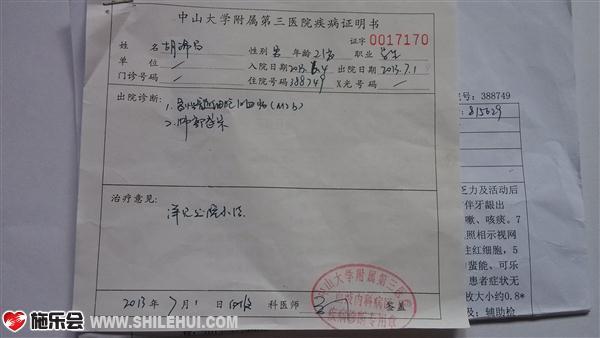 中山大学附属第三医院疾病证明书
证字 0017170
姓名 性别 男 年龄 21岁 职业 学生
单位 / 入院日期 2013.6.4 出院日期 2013.7.1
门诊号码 / 住院号码 388749 X光号码 /
出院诊断：
1. 急性 细胞白血病(M2b)
2. 肺部感染
治疗意见：
详见出院小结
2013年7月1日 科医师 签盖
中山大学附属第三
内科病
疾病诊断专用章
院号：388749
815629
乏力及活动后
伴牙龈出
嗽、咳痰。7
照相示视网
主红细胞，5
力蚩能、可乐
患者症状无
故大小约0.8*
及；辅助检
施乐会
WWW.SHILEHUI.COM